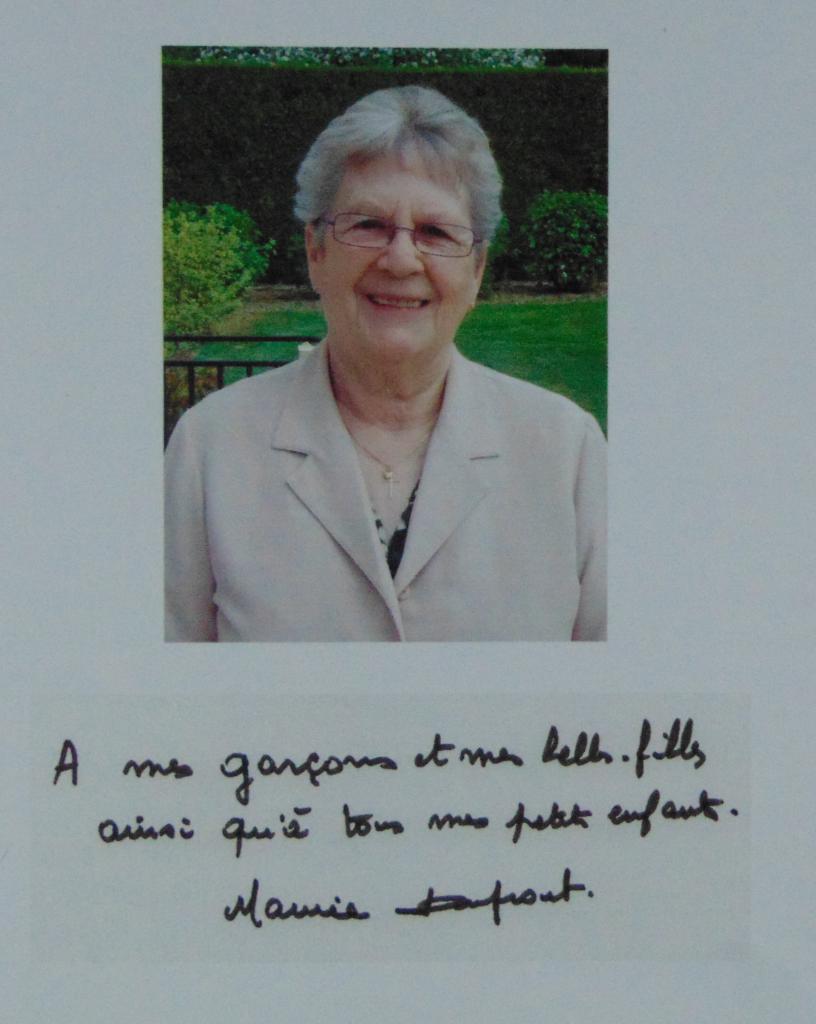 A mes garçons et mes belles-filles
ainsi qu'à tous mes petits enfants.
Mamie Dufront.